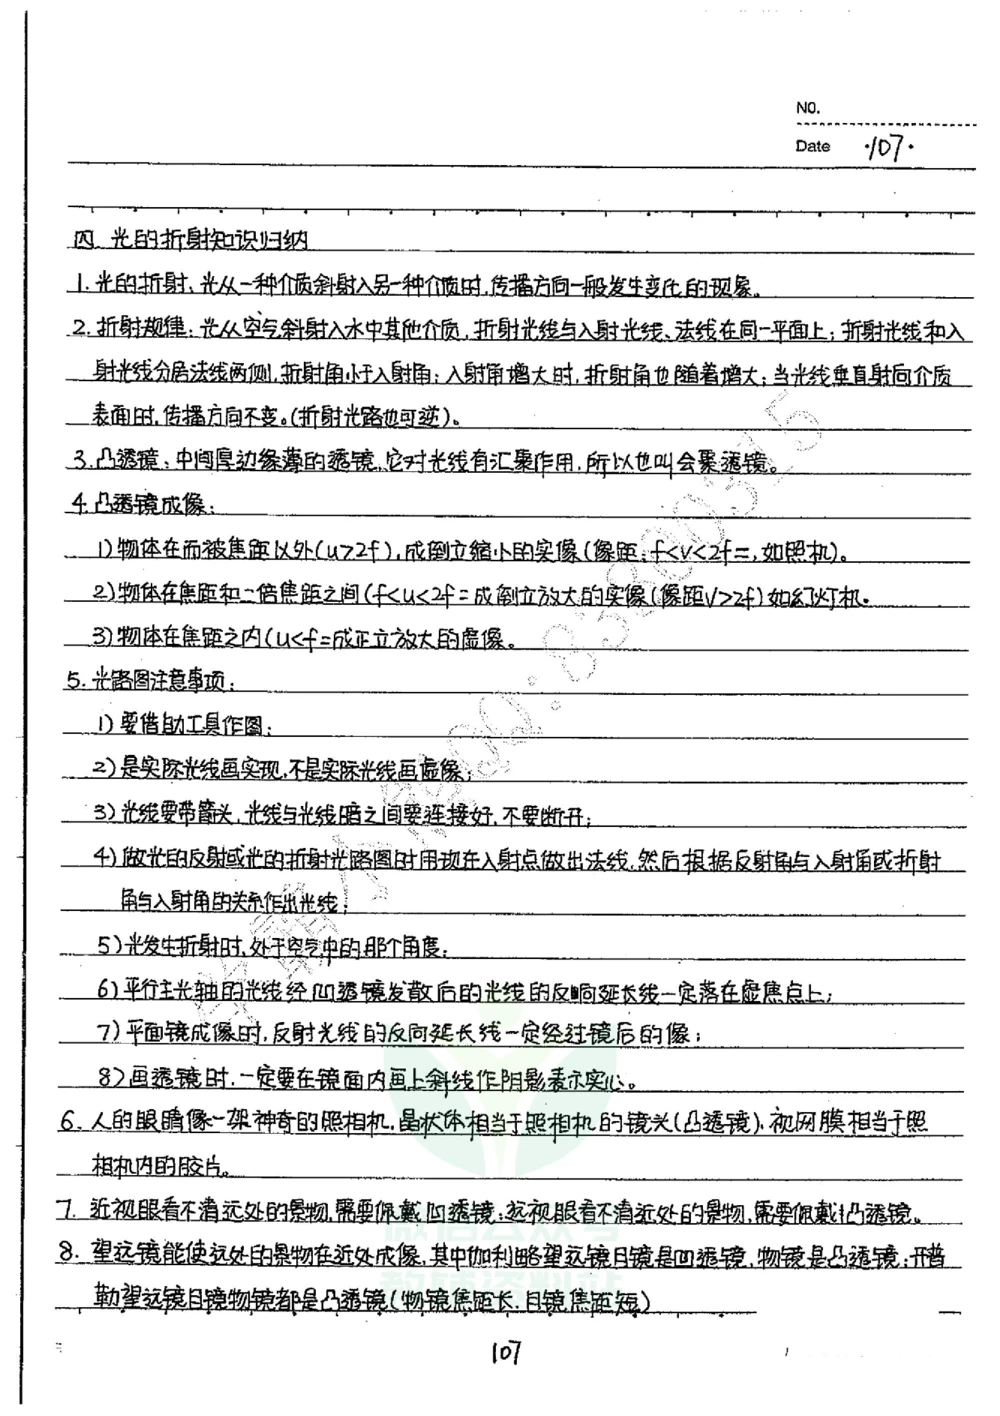 NO.
Date ·107·
四 光的折射知识归纳
1. 光的折射、光从一种介质斜射入另一种介质时,传播方向一般发生变化的现象。
2. 折射规律:光从空气斜射入水中其他介质,折射光线与入射光线、法线在同一平面上;折射光线和入
射光线分居法线两侧,折射角小于入射角;入射角增大时,折射角也随着增大;当光线垂直射向介质
表面时,传播方向不变。(折射光路也可逆)。
3.凸透镜:中间厚边缘薄的透镜,它对光线有汇聚作用,所以也叫会聚透镜。
4.凸透镜成像:
1)物体在而被焦距以外(u>2f),成倒立缩小的实像(像距:f<v<2f=,如照机)。
2)物体在焦距和二倍焦距之间(f<u<2f=成倒立放大的实像(像距v>2f)如幻灯机。
3)物体在焦距之内(u<f=成正立放大的虚像。
5.光路图注意事项:
1)要借助工具作图;
2)是实际光线画实现,不是实际光线画虚像;
3)光线要带箭头,光线与光线暗之间要连接好,不要断开;
4)做光的反射或光的折射光路图时用现在入射点做出法线,然后根据反射角与入射角或折射
角与入射角的关系作出光线;
5)光发生折射时,处于空气中的那个角度;
6)平行主光轴的光线经凹透镜发散后的光线的反响延长线一定落在虚焦点上;
7)平面镜成像时,反射光线的反向延长线一定经过镜后的像;
8)画透镜时,一定要在镜面内画上斜线作阴影表示实心。
6.人的眼睛像一架神奇的照相机,晶状体相当于照相机的镜头(凸透镜),视网膜相当于照
相机内的胶片。
7.近视眼看不清远处的景物,需要佩戴凹透镜;远视眼看不清近处的景物,需要佩戴凸透镜。
8.望远镜能使远处的景物在近处成像,其中伽利略望远镜目镜是凹透镜,物镜是凸透镜;开普
勒望远镜目镜物镜都是凸透镜(物镜焦距长,目镜焦距短)
107